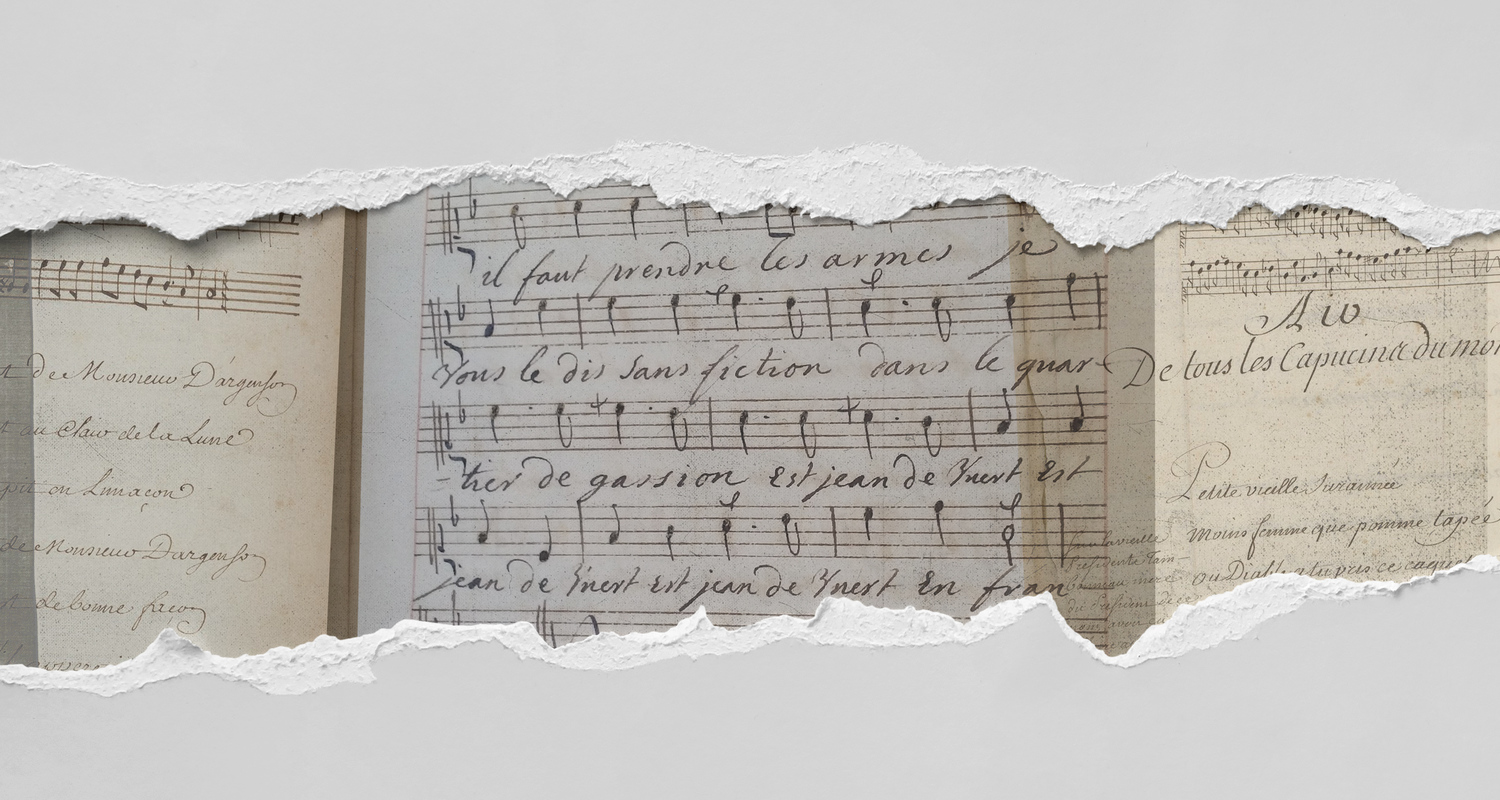 de Monsieur Dargenson
au Clair de la Lune
ou Limaçon
de Monsieur Dargenson
de bonne façon
il faut prendre les armes je
vous le dis sans fiction dans le quar-
-tier de gassion Est jean de Vuert Est
jean de Vuert Est jean de Vuert En fran
Air
De tous les Capucins du mon
Petite vieille Surannée
Moins femme que pomme tapée
ou Diable as tu pris ce caquet